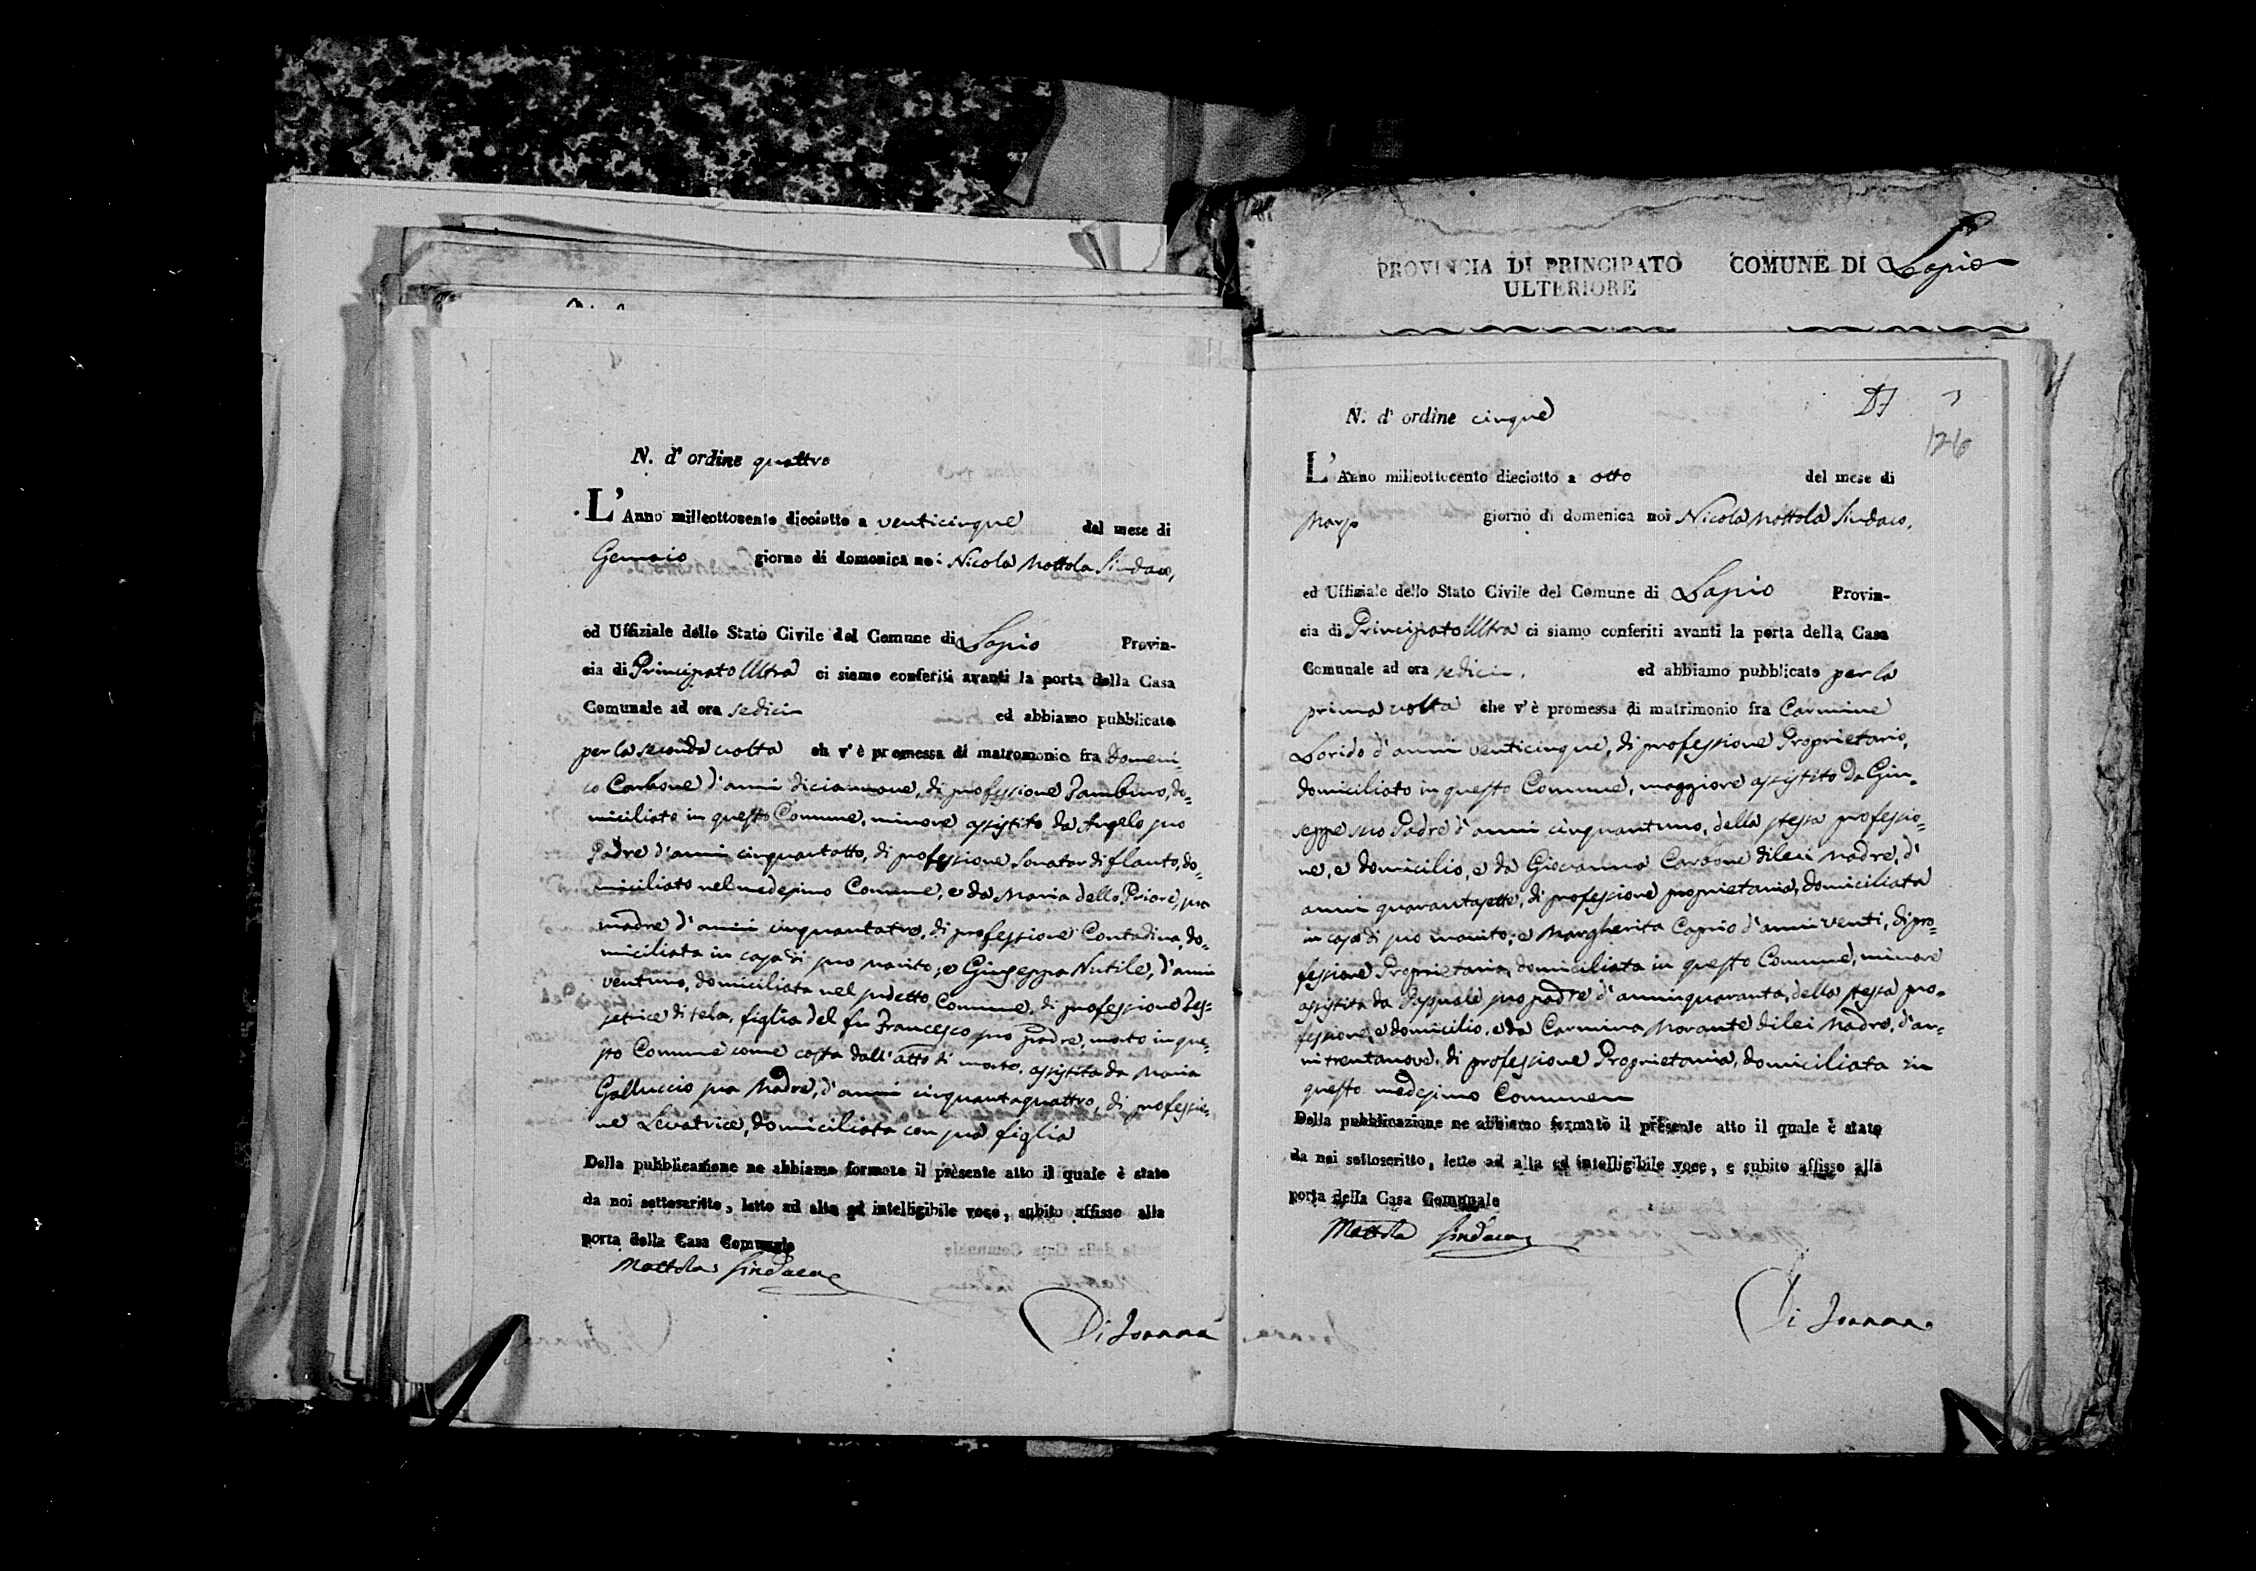 N. d' ordine quattro
L' Anno milleottocento dieciotto a venticinque del mese di
Gennaio giorno di domenica noi Nicola Mottola Sindaco,
ed Uffiziale dello Stato Civile del Comune di Lapio Provin-
cia di Principato Ultra ci siamo conferiti avanti la porta della Casa
Comunale ad ora sedici ed abbiamo pubblicato
per la seconda volta ch v' è promessa di matromonio fra Domeni-
co Carbone d'anni diciannove, di professione Tamburo, do=
miciliato in questo Comune, minore assistito da Angelo suo
Padre d'anni cinquantotto, di professione Sonator di flauto, do=
miciliato nel medesimo Comune, e da Maria dello Priore, sua
madre d'anni cinquantatre, di professione Contadina, do=
miciliata in casa di suo marito; e Giuseppa Nutile, d'anni
ventuno, domiciliata nel sudetto Comune, di professione Tes=
sitrice di tela, figlia del fu Francesco suo padre, morto in que=
sto Comune come costa dall'atto di morte, assistita da Maria
Galluccio sua Madre, d'anni cinquantaquattro, di professio=
ne Levatrice, domiciliata con sua figlia
Della pubblicazione ne abbiamo formato il presente atto il quale è stato
da noi sottoscritto, letto ad alta ed intelligibile voce, subito affisso alla
porta della Casa Comunale
Mottola Sindaco
Di Joanna
PROVINCIA DI PRINCIPATO COMUNE DI Lapio
ULTERIORE
126
N. d' ordine cinque
L' Anno milleottocento dieciotto a otto del mese di
Marzo giorno di domenica noi Nicola Mottola Sindaco,
ed Uffiziale dello Stato Civile del Comune di Lapio Provin-
cia di Principato Ultra ci siamo conferiti avanti la porta della Casa
Comunale ad ora sedici ed abbiamo pubblicato per la
prima volta che v' è promessa di matrimonio fra Carmine
Lorido d'anni venticinque, di professione Proprietario,
domiciliato in questo Comune, maggiore assistito da Giu=
seppe suo Padre d'anni cinquantuno, della stessa professio=
ne, e domicilio, e da Giovanna Carbone di lui Madre, d'
anni quarantasette, di professione proprietaria, domiciliata
in casa di suo marito; e Margherita Caprio d'anni venti, di pro=
fessione Proprietaria, domiciliata in questo Comune, minore
assistita da Pasquale suo padre d'anni quaranta, della stessa pro=
fessione, e domicilio, e da Carmina Morante di lei Madre, d'an=
ni trentanove, di professione Proprietaria, domiciliata in
questo medesimo Comune
Della pubblicazione ne abbiamo formato il presente atto il quale è stato
da noi sottoscritto, letto ad alta ed intelligibile voce, e subito affisso alla
porta della Casa Comunale
Mottola Sindaco
Di Joanna